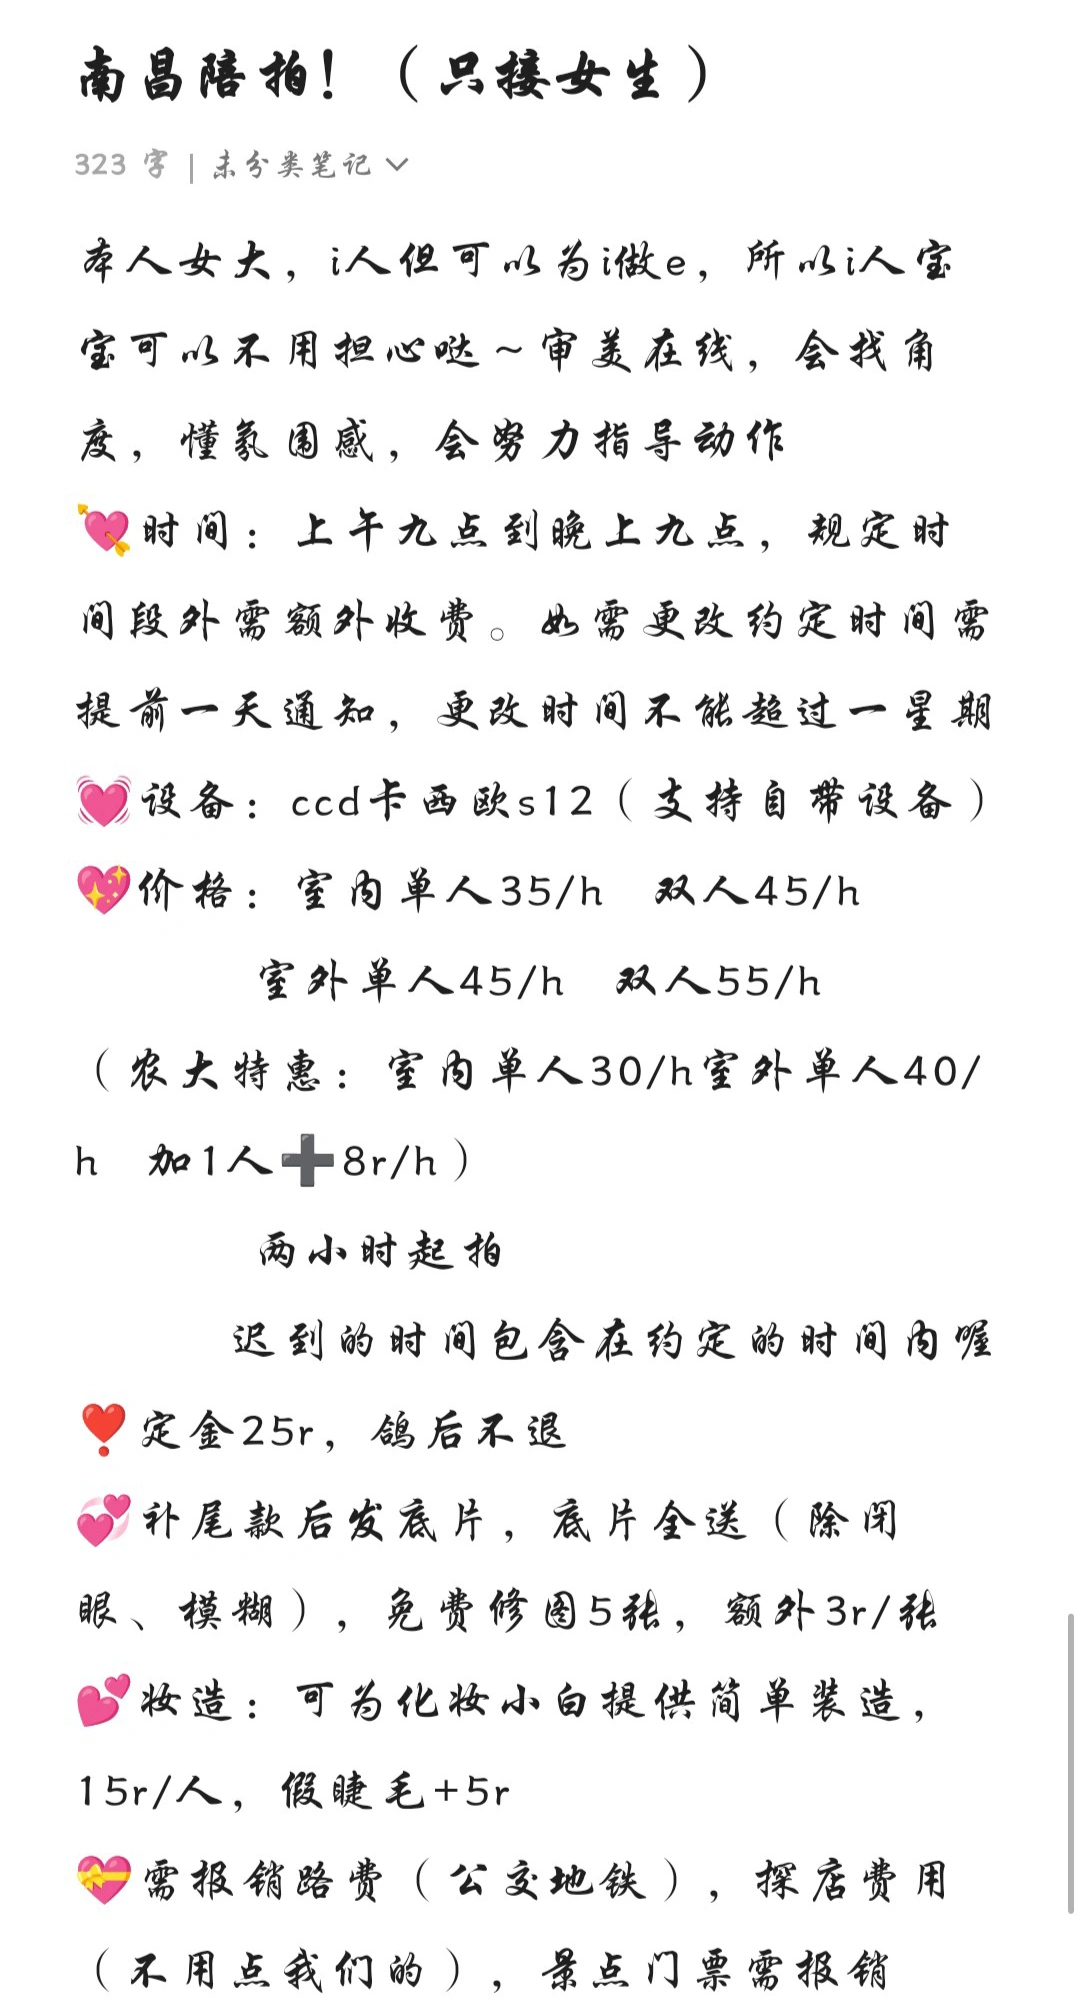 南昌陪拍！（只接女生）
323 字 | 未分类笔记
本人女大，i人但可以为i做e，所以i人宝
宝可以不用担心哒～审美在线，会找角
度，懂氛围感，会努力指导动作
💘时间：上午九点到晚上九点，规定时
间段外需额外收费。如需更改约定时间需
提前一天通知，更改时间不能超过一星期
💓设备：ccd卡西欧s12（支持自带设备）
💖价格：室内单人35/h 双人45/h
室外单人45/h 双人55/h
（农大特惠：室内单人30/h室外单人40/
h 加1人➕8r/h）
两小时起拍
迟到的时间包含在约定的时间内喔
❣️定金25r，鸽后不退
💞补尾款后发底片，底片全送（除闭
眼、模糊），免费修图5张，额外3r/张
💕妆造：可为化妆小白提供简单装造，
15r/人，假睫毛+5r
💝需报销路费（公交地铁），探店费用
（不用点我们的），景点门票需报销